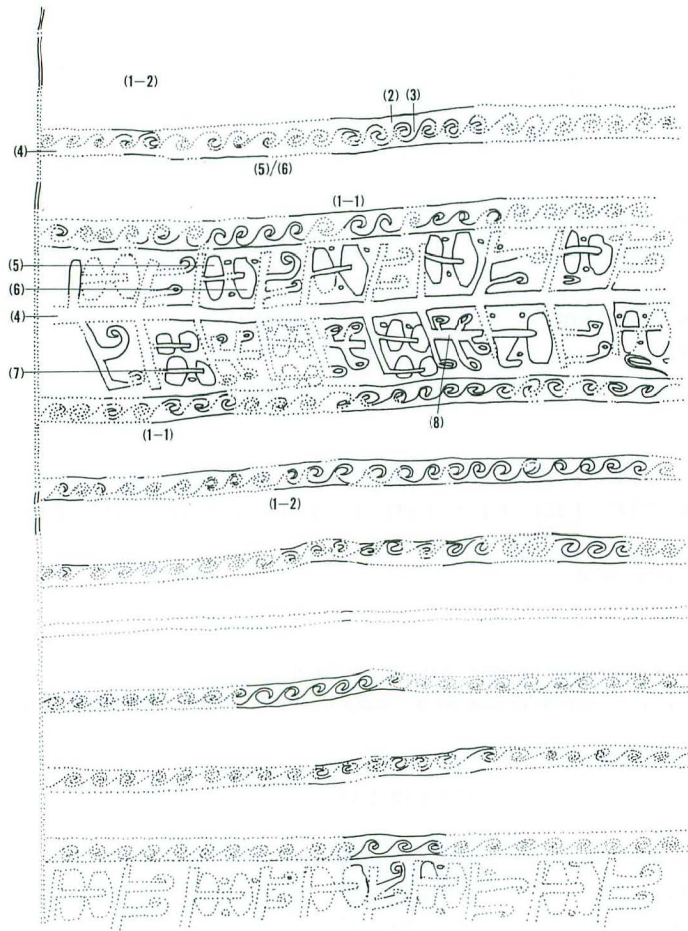 (1–2)
(2) (3)
(4)
(5)/(6)
(1–1)
(5)
(6)
(4)
(7)
(8)
(1–1)
(1–2)